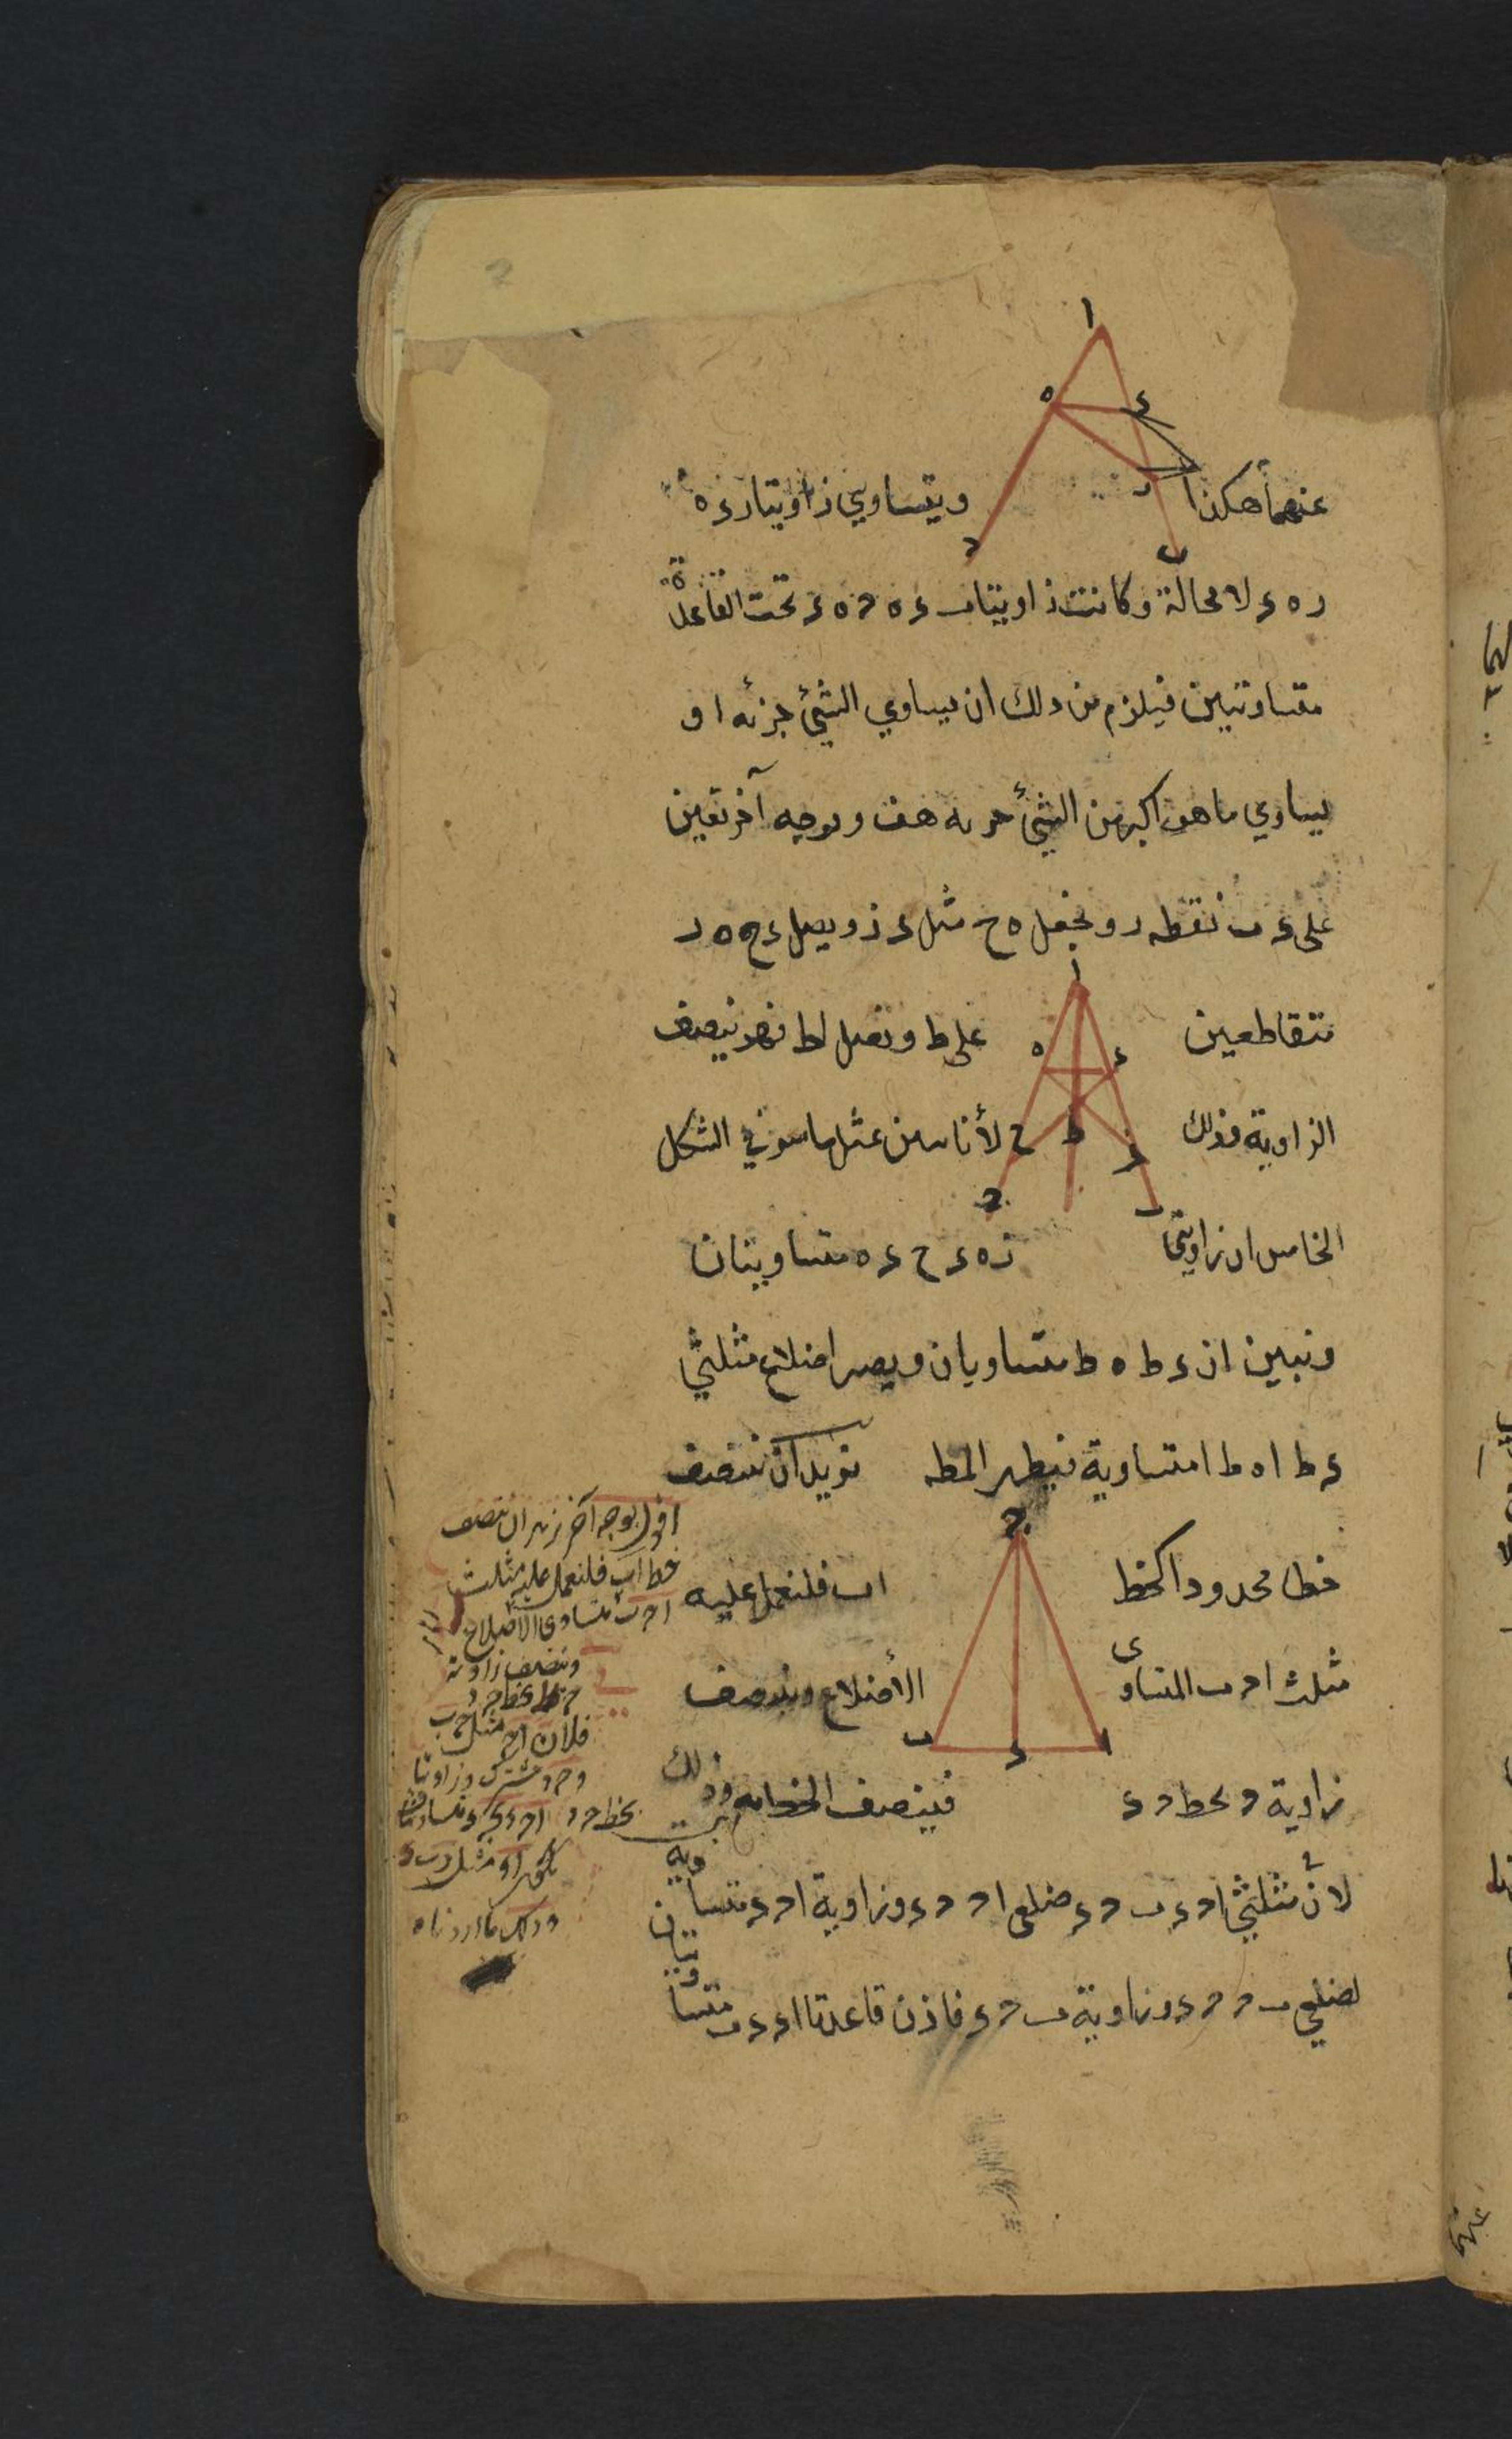 عنهما هكذا ويتساوي زاويتا ر ء ه
ر ه ء لا محالة وكانت زاويتا ب ء ه ح ه ء تحت القاعدة
متساويتين فيلزم من ذلك ان يساوي الشئ جزئه او
يساوي ما هو اكبر من الشئ جزئه هف وبوجه آخر نعين
على ء ب نقطه ر ونجعل ه ح مثل ء ز ويصل ء ح ه ر
متقاطعين على ط ونصل ا ط فهو ينصف
الزاوية وذلك لأنا نبين بمثل ما مر في الشكل
الخامس ان زاويتي ز ه ء ح ء ه متساويتان
ونبين ان ء ط ه ط متساويان ويصير اضلاع مثلثي
ء ط ا ه ط ا متساوية فيظهر المط نريد ان ننصف
خطا محدودا كخط ا ب فلنعمل عليه
مثلث ا ح ب المتساوى الأضلاع وننصف
زاوية ح بخط ح ء فينصف الخط به وذلك
لأن مثلثي ا ح ء ب ح ء ضلعى ا ح ح ء وزاوية ا ح ء متساوية
لضلعي ب ح ح ء وزاوية ب ح ء فاذن قاعدتا ا ء ء ب متساويتان
اقول بوجه آخر نريد ان ننصف
خط ا ب فلنعمل عليه مثلث
ا ح ب متساوى الاضلاع
وننصف زاوية
ح بخط ح د
فلان ا ح مثل ح ب
و ح د مشترك وزاويتا
ا ح د ب ح د متساويتان
يكون ا د مثل د ب
وذلك ما اردناه